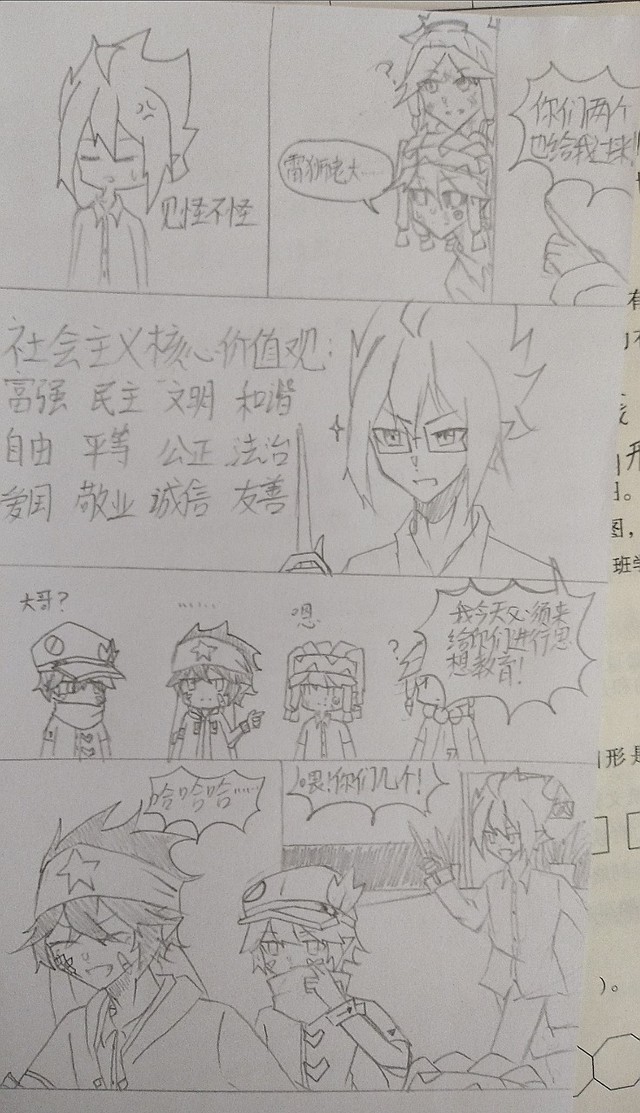 见怪不怪
?
雷狮老大……
你们两个
也给我过来!
社会主义核心价值观:
富强 民主 文明 和谐
自由 平等 公正 法治
爱国 敬业 诚信 友善
大哥?
……
嗯
?
我今天必须来
给你们进行思
想教育!
哈哈哈……
喂!你们几个!
有
图,
班学
形是
)。